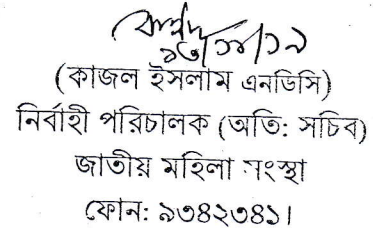 ১৩/১১/১৯
(কাজল ইসলাম এনডিসি)
নির্বাহী পরিচালক (অতি: সচিব)
জাতীয় মহিলা সংস্থা
ফোন: ৯৩৪২৩৪১।